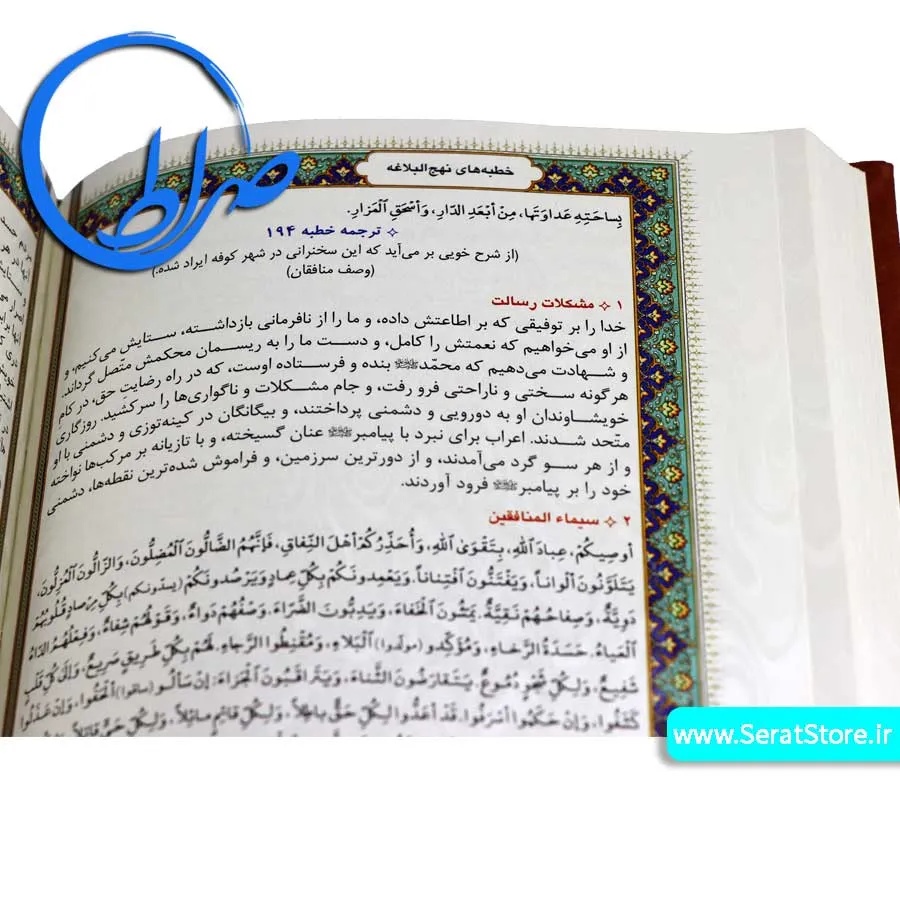 صراط
خطبه‌های نهج‌البلاغه
بِساحَتِهِ عَداوَتَها، مِنْ أبْعَدِ الدّارِ، وَأسْحَقِ الْمَزارِ.
ترجمه خطبه ۱۹۴
(از شرح خویی بر می‌آید که این سخنرانی در شهر کوفه ایراد شده.)
(وصف منافقان)
۱ مشکلات رسالت
خدا را بر توفیقی که بر اطاعتش داده، و ما را از نافرمانی بازداشته، ستایش می‌کنیم، و
از او می‌خواهیم که نعمتش را کامل، و دست ما را به ریسمان محکمش متّصل گرداند.
و شهادت می‌دهیم که محمّدﷺ بنده و فرستاده اوست، که در راه رضایتِ حق، در کامِ
هرگونه سختی و ناراحتی فرو رفت، و جام مشکلات و ناگواری‌ها را سرکشید. روزگاری
خویشاوندان او به دورویی و دشمنی پرداختند، و بیگانگان در کینه‌توزی و دشمنی با او
متّحد شدند. اعراب برای نبرد با پیامبرﷺ عنان گسیخته، و با تازیانه بر مرکب‌ها نواخته
و از هر سو گرد می‌آمدند، و از دورترین سرزمین، و فراموش شده‌ترین نقطه‌ها، دشمنی
خود را بر پیامبرﷺ فرود آوردند.
۲ سیماء المنافقین
أوصِيكُمْ، عِبادَ اللهِ، بِتَقْوَى اللهِ، وَأُحَذِّرُكُمْ أهْلَ النِّفاقِ، فَإنَّهُمُ الضّالُّونَ الْمُضِلُّونَ، وَالزّالُّونَ الْمُزِلُّونَ،
يَتَلَوَّنُونَ ألْواناً، وَيَفْتَنُّونَ افْتِناناً. وَيَعْمِدُونَكُمْ بِكُلِّ عِمادٍ وَيَرْصُدُونَكُمْ (یصدّونکم) بِكُلِّ مِرْصادٍ قُلُوبُهُمْ
دَوِيَّةٌ، وَصِفاحُهُمْ نَقِيَّةٌ. يَمْشُونَ الْخَفاءَ، وَيَدِبُّونَ الضَّرّاءَ. وَصْفُهُمْ دَواءٌ، وَقَوْلُهُمْ شِفاءٌ، وَفِعْلُهُمُ الدّاءُ
الْعَياءُ. حَسَدَةُ الرَّخاءِ، وَمُؤَكِّدُو (مولّدوا) الْبَلاءِ، وَمُقْنِطُوا الرَّجاءِ. لَهُمْ بِكُلِّ طَرِيقٍ صَرِيعٌ، وَإلَى كُلِّ قَلْبٍ
شَفِيعٌ، وَلِكُلِّ شَجْوٍ دُمُوعٌ. يَتَقارَضُونَ الثَّناءَ، وَيَتَراقَبُونَ الْجَزاءَ: إنْ سَألُوا (ساقوا) ألْحَفُوا، وَإنْ عَذَلُوا
كَشَفُوا، وَإنْ حَكَمُوا أسْرَفُوا. قَدْ أعَدُّوا لِكُلِّ حَقٍّ باطِلاً، وَلِكُلِّ قائِمٍ مائِلاً، وَلِكُلِّ حَيٍّ قاتِلاً،
www.SeratStore.ir